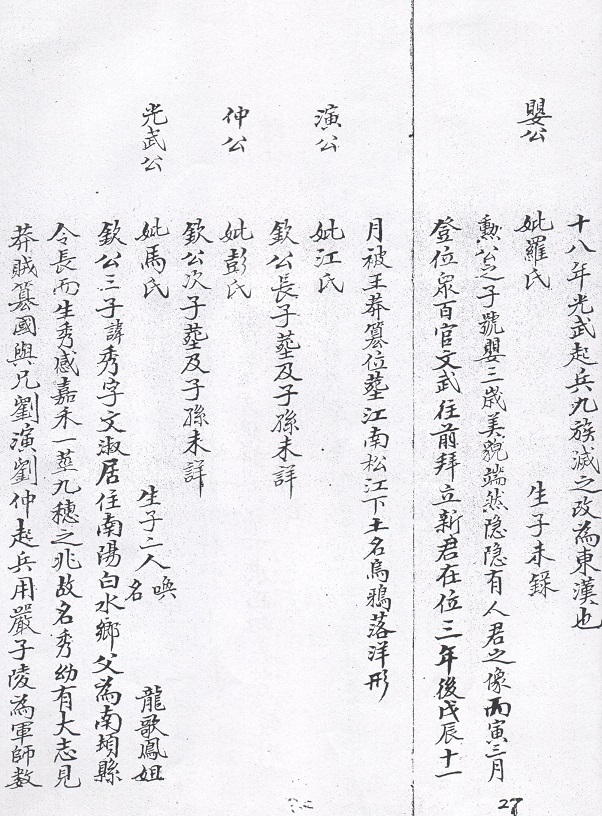 十八年光武起兵九族滅之改為東漢也
嬰公
妣羅氏 生子未錄
勲公之子號嬰三歲美貌端然隐隐有人君之像丙寅三月
登位衆百官文武往前拜立新君在位三年後戊辰十一
月被王莽篡位塟江南松江下土名烏鴉落洋形
演公
妣江氏
欽公長子塟及子孫未詳
仲公
妣彭氏
欽公次子塟及子孫未詳
光武公
妣馬氏 生子二人喚名 龍歌鳳姐
欽公三子諱秀字文淑居住南陽白水鄉父為南頓縣
令長而生秀感嘉禾一莖九穗之兆故名秀幼有大志見
莽賊篡國與兄劉演劉仲起兵用嚴子陵為軍師数
27